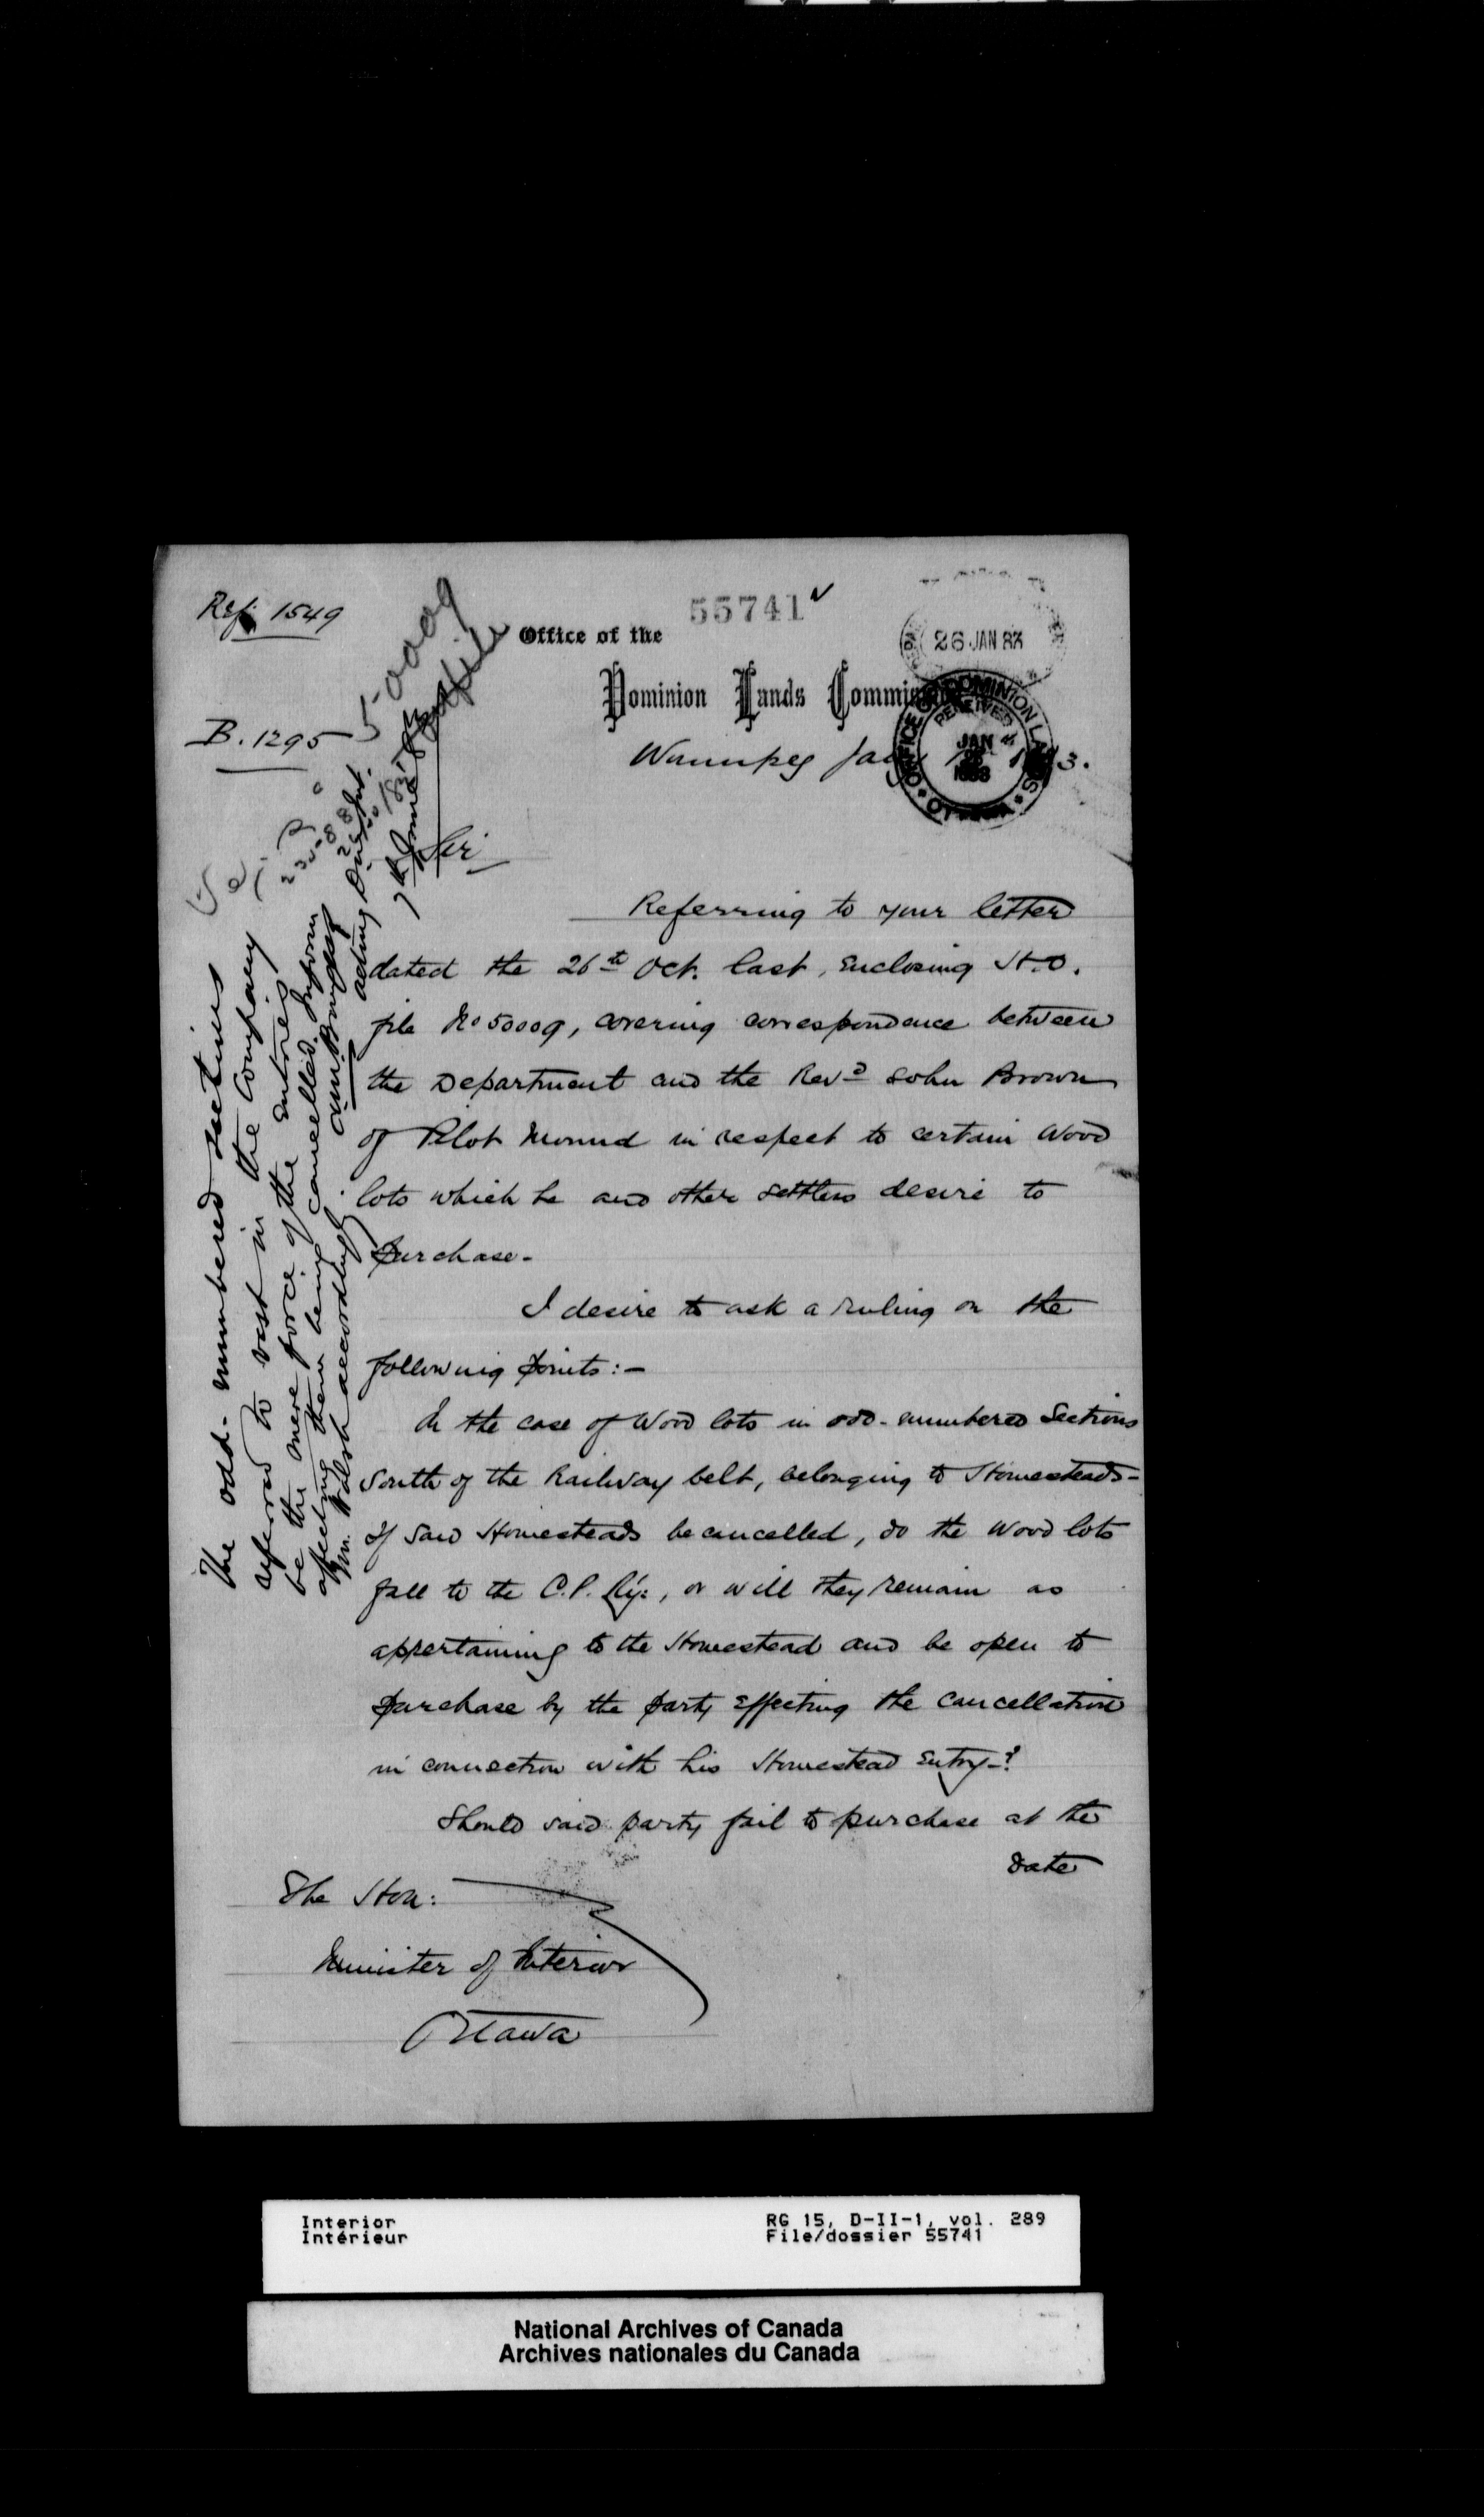 Ref. 1549
55741
Office of the
26 JAN 83
50009
Dominion Lands Commis
B. 1295
OFFICE DOMINION LANDS
RECEIVED
JAN
1883
OTTAWA
Winnipeg Jany 3.
Sir
Referring to your letter
dated the 26th Oct. last, Enclosing H.O.
file No 50009, covering correspondence between
the Department and the Revd John Brown
of Pilot Mound in respect to certain Wood
lots which he and other settlers desire to
purchase -
I desire to ask a ruling on the
following points: -
In the case of Wood lots in odd-numbered Sections
South of the Railway belt, belonging to Homesteads -
If said Homesteads be cancelled, do the Wood lots
fall to the C.P. Ry:, or will they remain as
appertaining to the Homestead and be open to
purchase by the party effecting the cancellation
in connection with his Homestead Entry -?
Should said party fail to purchase at the
date
The Hon:
Minister of Interior
Ottawa
The odd-numbered sections
referred to vest in the Company
be the mere force of the Entries
affecting them being cancelled. Inform
Mr. Walsh accordingly.
A.M. Burgess
acting
Interior
Intérieur
RG 15, D-II-1, vol. 289
File/dossier 55741
National Archives of Canada
Archives nationales du Canada